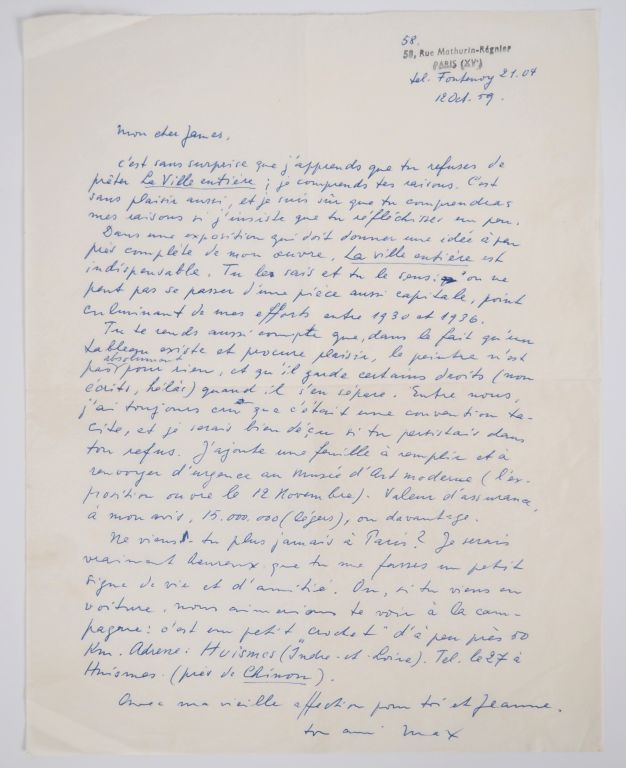 58.
58, Rue Mathurin-Régnier
PARIS (XVe)
tel. Fontenoy 21.04
12 Oct. 59.
Mon cher James,
c'est sans surprise que j'apprends que tu refuses de
prêter La Ville entière ; je comprends tes raisons. C'est
sans plaisir aussi, et je suis sûr que tu comprendras
mes raisons si j'insiste que tu réfléchisses un peu.
Dans une exposition qui doit donner une idée à peu
près complète de mon œuvre, La ville entière est
indispensable. Tu le sais et tu le sens: on ne
peut pas se passer d'une pièce aussi capitale, point
culminant de mes efforts entre 1930 et 1936.
Tu te rends aussi compte que, dans le fait qu'un
tableau existe et procure plaisir, le peintre n'est
absolument
pas pour rien, et qu'il garde certains droits (non
écrits, hélàs) quand il s'en sépare. Entre nous,
j'ai toujours cru que c'était une convention ta-
cite, et je serais bien déçu si tu persistais dans
ton refus. J'ajoute une feuille à remplir et à
renvoyer d'urgence au Musée d'Art moderne (l'ex-
position ouvre le 12 Novembre). Valeur d'assurance,
à mon avis, 15.000.000 (légers), ou davantage.
Ne viens-tu plus jamais à Paris? Je serais
vraiment heureux que tu me fasses un petit
signe de vie et d'amitié. Ou, si tu viens en
voiture, nous aimerions te voir à la cam-
pagne: c'est un petit "crochet" d'à peu près 50
Km. Adresse: Huismes (Indre-et-Loire). Tel. le 27 à
Huismes. (près de Chinon).
Avec ma vieille affection pour toi et Jeanne.
ton ami Max